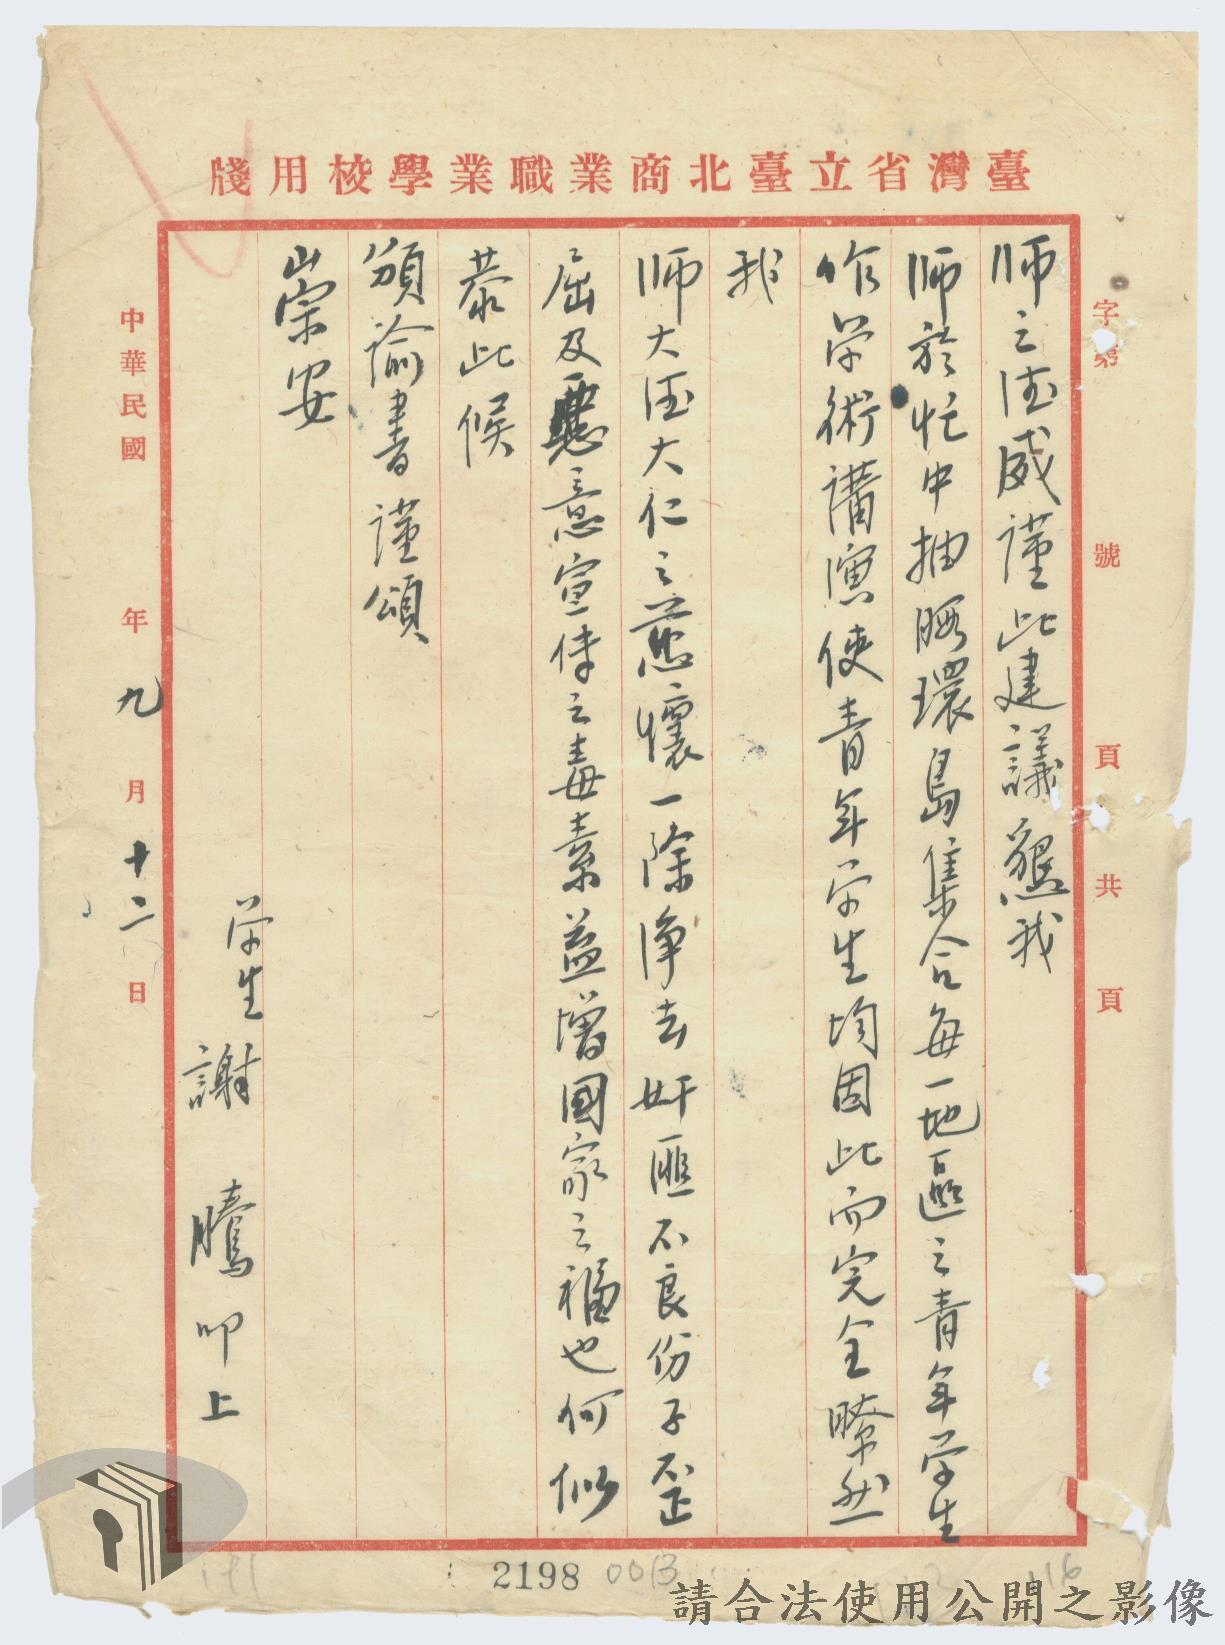 臺灣省立臺北商業職業學校用牋
字第　號　頁共　頁
师之德威謹此建議懇我
师於忙中抽暇環島集合每一地區之青年学生
作学術講演使青年学生均因此而完全瞭然
我
师大德大仁之慈懷一除淨去奸匪不良份子歪
屈及惡意宣传之毒素益增國家之福也何似
恭此候
頒諭書謹頌
崇安
学生 謝 騰 叩上
中華民國　年九月十二日
2198
0013
116
請合法使用公開之影像